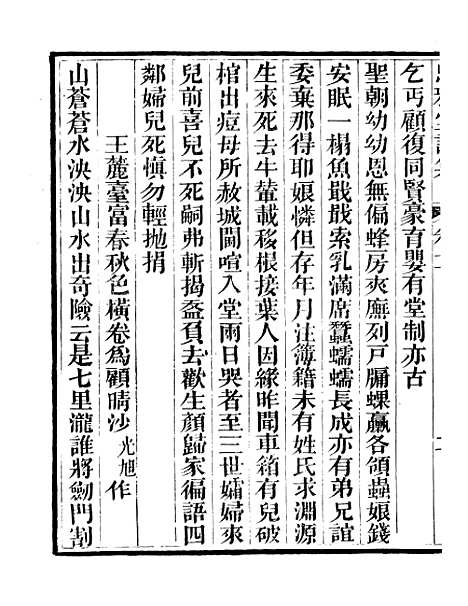 乞丐顧復同賢豪育嬰有堂制亦古
聖朝幼幼恩無偏蜂房爽廡列戸牖蜾蠃各領蟲娘錢
安眠一榻魚戢戢索乳滿席蠶蠕蠕長成亦有弟兄誼
委棄那得耶娘憐但存年月注簿籍未有姓氏求淵源
生來死去牛輦載移根接葉人因緣昨聞車箱有兒破
棺出痘母所赦城闉喧入堂兩日哭者至三世孀婦來
兒前喜兒不死嗣弗斬揭盔負去歡生顏歸家徧語四
鄰婦兒死慎勿輕拋捐
王麓臺富春秋色橫卷爲顧晴沙光旭作
山蒼蒼水泱泱山水出奇險云是七里瀧誰將劒門割